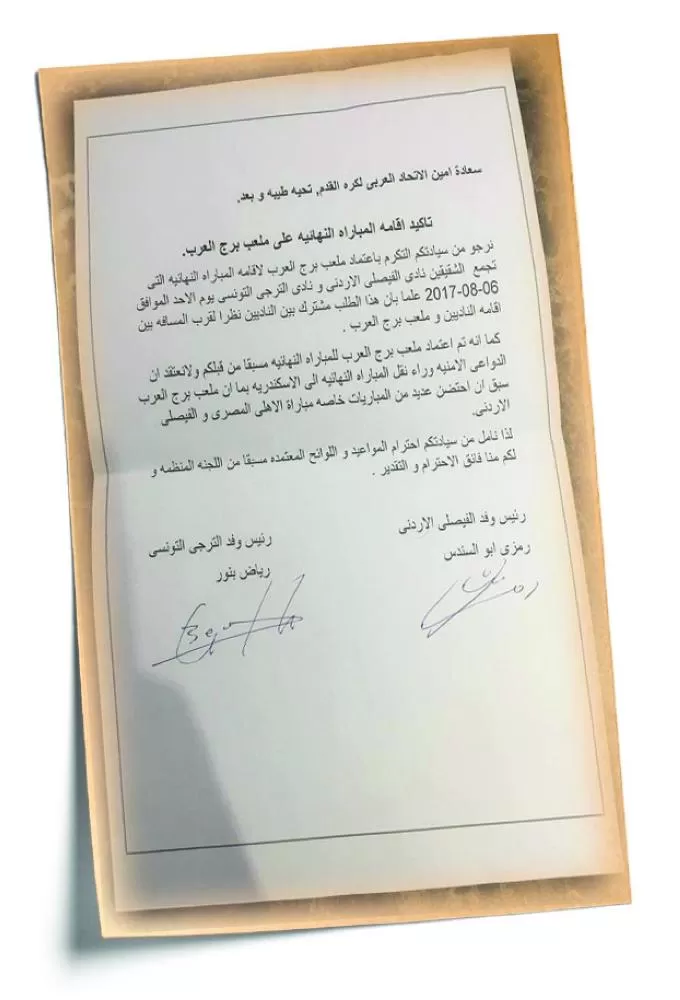 سعادة امين الاتحاد العربى لكره القدم, تحيه طيبه و بعد.
تاكيد اقامه المباراه النهائيه على ملعب برج العرب.
نرجو من سيادتكم التكرم باعتماد ملعب برج العرب لاقامه المباراه النهائيه التى
تجمع الشقيقين نادى الفيصلى الاردنى و نادى الترجى التونسى يوم الاحد الموافق
06-08-2017 علما بان هذا الطلب مشترك بين الناديين نظرا لقرب المسافه بين
اقامه الناديين و ملعب برج العرب .
كما انه تم اعتماد ملعب برج العرب للمباراه النهائيه مسبقا من قبلكم ولانعتقد ان
الدواعى الامنيه وراء نقل المباراه النهائيه الى الاسكندريه بما ان ملعب برج العرب
سبق ان احتضن عديد من المباريات خاصه مباراة الاهلى المصرى و الفيصلى
الاردنى.
لذا نامل من سيادتكم احترام المواعيد و اللوائح المعتمده مسبقا من اللجنه المنظمه و
لكم منا فائق الاحترام و التقدير .
رئيس وفد الفيصلى الاردنى
رمزى ابو السندس
رئيس وفد الترجى التونسى
رياض بنور